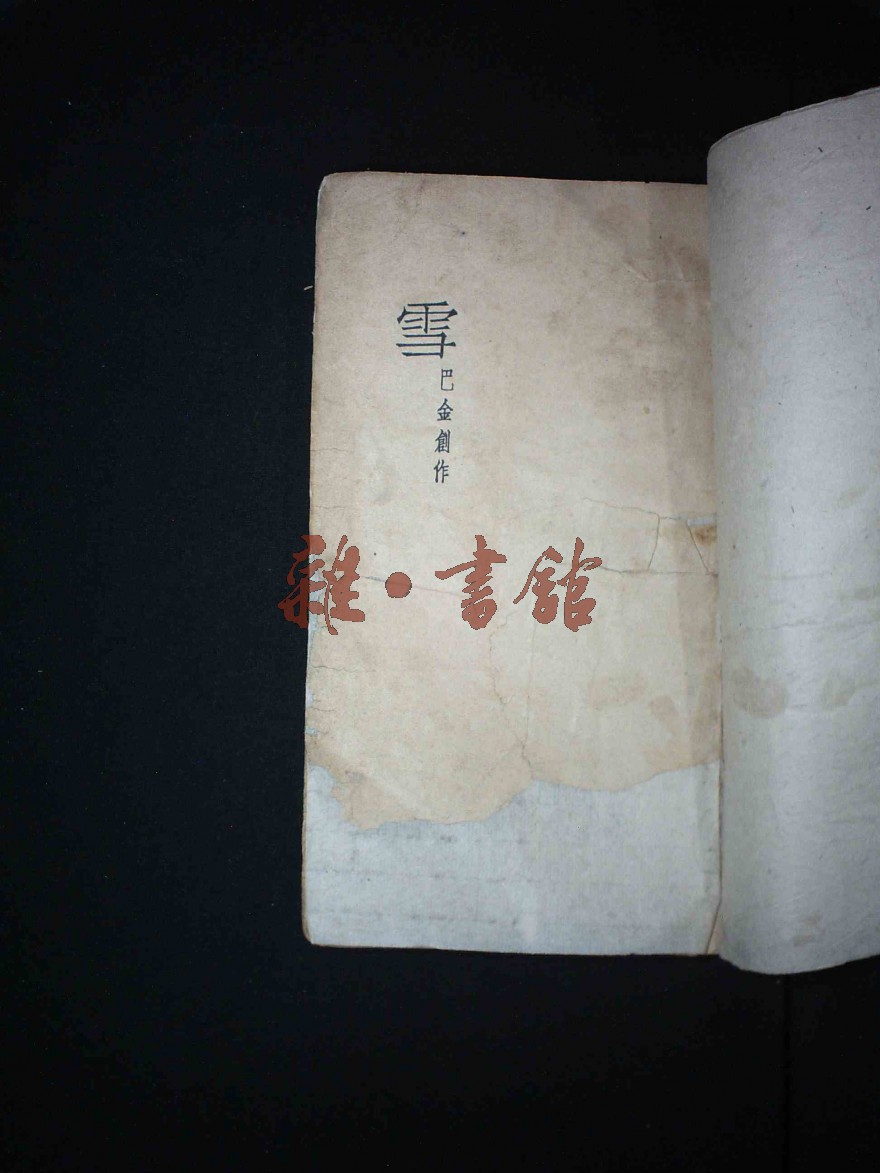 雪
巴金創作
雜·書館